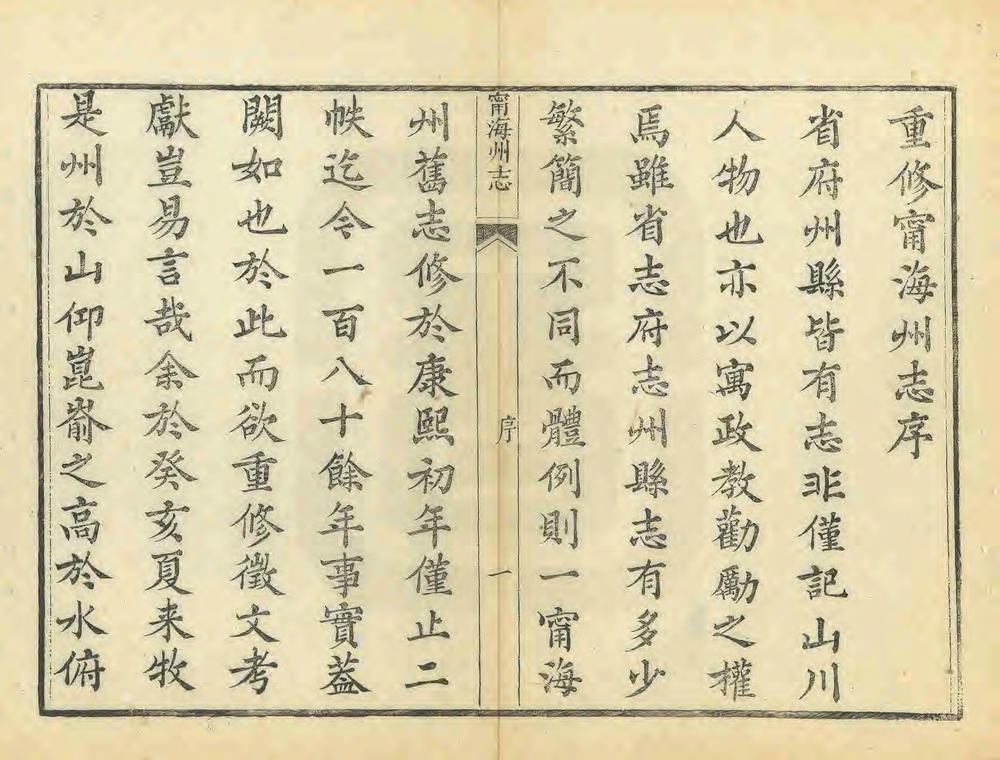 重修甯海州志序
省府州縣皆有志非僅記山川
人物也亦以寓政教勸勵之權
焉雖省志府志州縣志有多少
繁簡之不同而體例則一甯海
甯海州志
序
一
州舊志修於康熙初年僅止二
帙迄今一百八十餘年事實蓋
闕如也於此而欲重修徵文考
獻豈易言哉余於癸亥夏来牧
是州於山仰崑崳之高於水俯